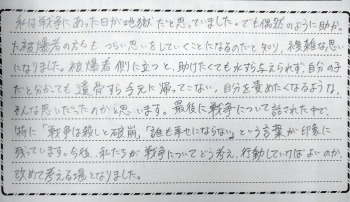 私は戦争にあった日が地獄だと思っていました。でも偶然のように助かっ
た被爆者の方もつらい思いをしていくことになるのだと知り、複雑な思い
になりました。被爆者側に立つと、助けたくても水すら与えられず、自分の子
だと分かっても遺骨すら手元に帰ってこない。自分を責めたくなるような、
そんな思いだったのかなと思います。最後に戦争について話された中で、
特に「戦争は殺しと破崩」「誰も幸せにならない」という言葉が印象に
残っています。今後、私たちが戦争についてどう考え、行動していけばよいのか、
改めて考える場となりました。